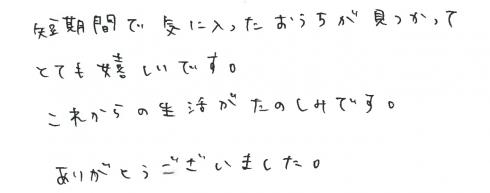 短期間で気に入ったおうちが見つかって
とても嬉しいです。
これからの生活がたのしみです。
ありがとうございました。